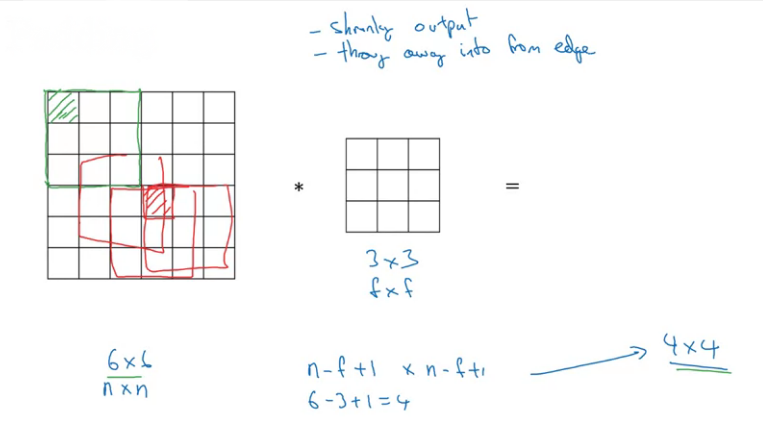 - shrinky output
- throw away info from edge
*
=
3 × 3
f × f
6 × 6
n × n
n - f + 1 × n - f + 1
6 - 3 + 1 = 4
→ 4 × 4